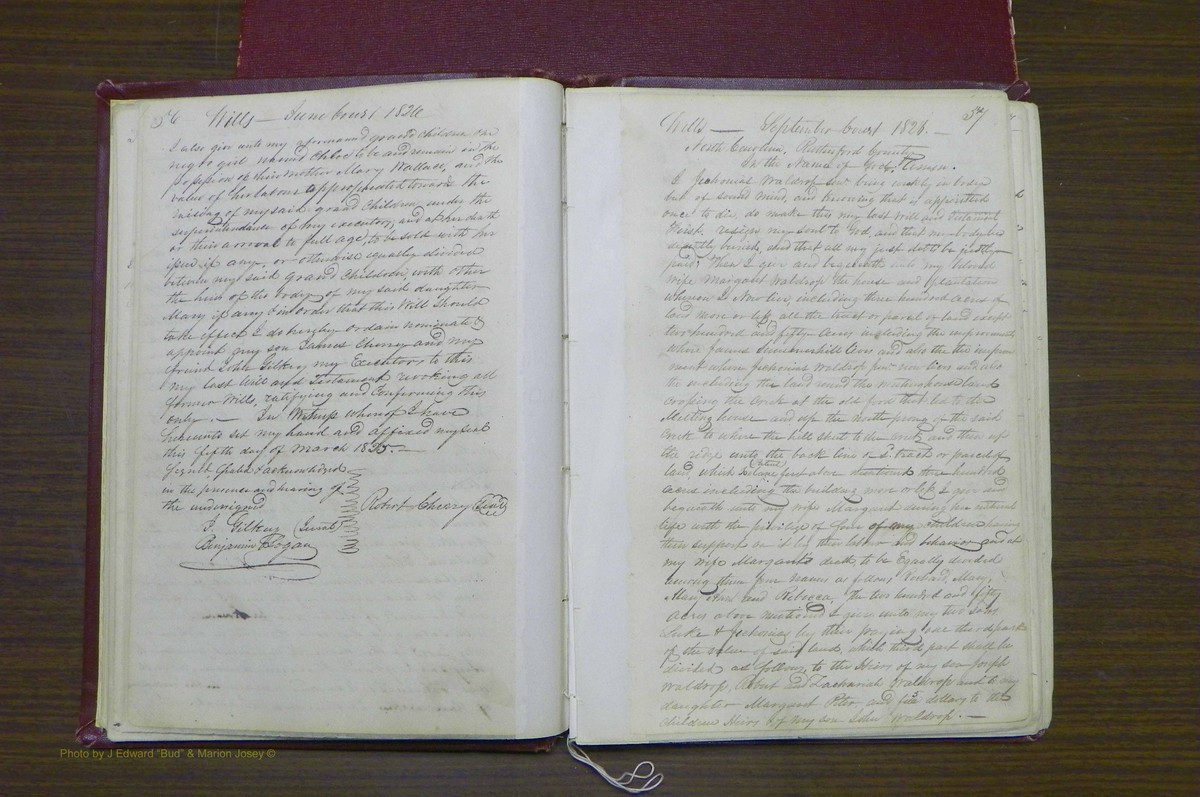 56 Wills — June Court 1826
I also give unto my aforenamed grand children one
negro girl named Chloe to be and remain in the
possession of their mother Mary Wallace, and the
value of her labour to appropriated towards the
raising of my said grand children, under the
superintendance of my executors, and at her death
or their arrival to full age, to be sold with her
issue if any, or otherwise equally divided
between my said grand children, with other
the heirs of the body of my said daughter
Mary if any & in order that this Will should
take effect I do hereby ordain nominate &
appoint my son James Cherry and my
friend John Gilkey my Executors to this
my last will and Testament revoking all
former Wills, ratifying and Confirming this
only. — In Witness whereof I have
hereunto set my hand and affixed my seal
this fifth day of March 1825. —
Signed, Sealed & acknowledged
in the presence and hearing of
the undersigned
Robert Cherry (Seal)
J. Gilkey (Jurat)
Benjamin Logan
Wills — September Court 1826. — 57
North Carolina, Rutherford County
In the Name of God, Amen.
I Jechonias Waldrop senr being weakly in body
but of sound mind, and knowing that is appointed
once to die, do make this my last will and testament
First. resign my soul to God, and that my body be
decently buried, and that all my just debts be justly
paid; Then I give and bequeath unto my beloved
wife Margaret Waldrop the house and plantation
whereon I now live, including three hundred acres of
land more or less, all the tract or parcel of land except
two hundred and fifty acres including the improvement
where James lives and also the the improve
ment where Jechonias Waldrop junr now lives and also
the including the land round the meeting house land
crossing the Creek at the old ford that led to the
Meeting house — and up the north prong of the said
Creek to where the hill shuts to the creek, and then up
the ridge unto the back line — tract or parcel of
land, which first above mentioned three hundred
acres including the building more or less I give and
bequeath unto my wife Margaret during her natural
life with the privilege of four of my children having
their support on it by their labor and behavior and at
my wife Margarets death to be Equally divided
among them four names as follows, Mary,
Mary Ann and Rebecca, the two hundred and fifty
acres above mentioned I give unto my two sons
Luke & Jechonias by their paying one third part
of the value of said land, which third part shall be
divided as follows, to the Heirs of my son Joseph
Waldrop, and Zachariah Waldrop and to my
daughter Margaret and five dollars to the
children Heirs of my son John Waldrop. —
Photo by J Edward "Bud" & Marion Josey ©